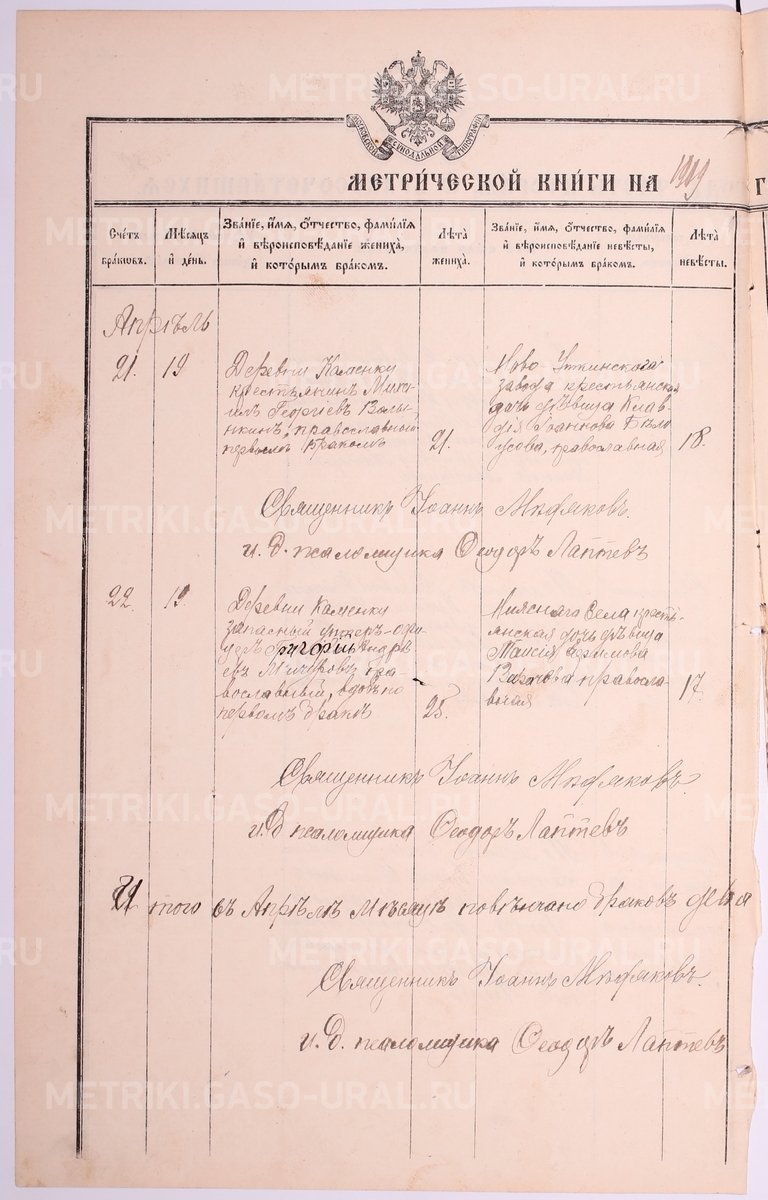 МОСКОВСКОЙ СѴНОДАЛЬНОЙ ТИПОГРАФІИ
МЕТРИ́ЧЕСКОЙ КНИ́ГИ НА 1919 Г
Сче́тъ бра́ковъ.
Мѣ́сяцъ и де́нь.
Зва́нїе, и́мя, ѻ́тчество, фами́лїя и҆ вѣроисповѣ́данїе жениха̀, и҆ кото́рымъ бра́комъ.
Лѣта̀ жениха̀.
Зва́нїе, и́мя, ѻ́тчество, фами́лїя и҆ вѣроисповѣ́данїе невѣ́сты, и҆ кото́рымъ бра́комъ.
Лѣта̀ невѣ́сты.
Апрѣль
21. 19
Деревни Каменки
крестьянинъ Миха-
илъ Георгіевъ Валы-
нкинъ, православный
первымъ бракомъ
21.
Ново Уткинскаго
завода крестьянская
дочь дѣвица Клав-
дія Іоаннова Бѣло
усова, православная
18.
Священникъ Іоаннъ Мѣдяковъ.
и. д. псаломщика Ѳеодоръ Лаптевъ
22. 19.
Деревни Каменки
запасный унтеръ-офи-
церъ Андре
евъ пра-
вославный, вдовъ по
первомъ бракѣ
25.
Села кресть-
янская дочь дѣвица
Таисія Ефимова
православ-
ная
17.
Священникъ Іоаннъ Мѣдяковъ.
и. Д псаломщика Ѳеодоръ Лаптевъ
Итого въ Апрѣлѣ мѣсяцѣ повѣнчано браковъ два
Священникъ Іоаннъ Мѣдяковъ.
и. Д. псаломщика Ѳеодоръ Лаптевъ
METRIKI.GASO-URAL.RU